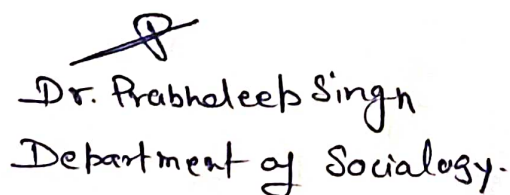 Dr. Prabhdeep Singh
Department of Socialogy.